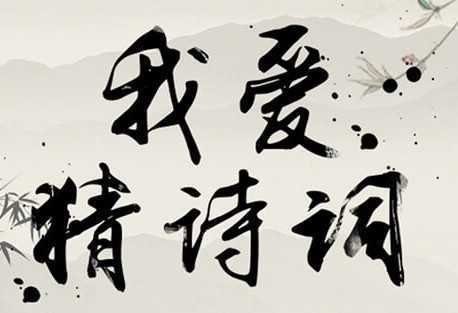 我爱
猜诗词